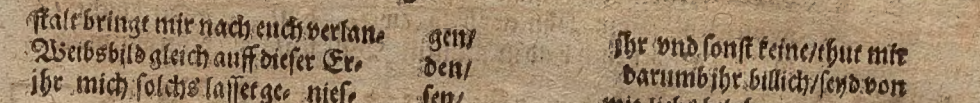 stalt bringt mir nach euch verlan⸗ gen/
Weibsbild gleich auff dieser Er⸗ den/
jhr mich solchs lasset ge⸗ nies⸗ sen/
jhr vnd sonst keine/thut mir
darumb jhr billich/seyd von